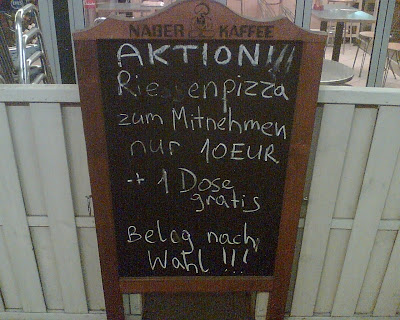 NABER KAFFEE
AKTION!!!
Riesenpizza
zum Mitnehmen
nur 10EUR
+ 1 Dose
gratis
Belag nach
Wahl !!!